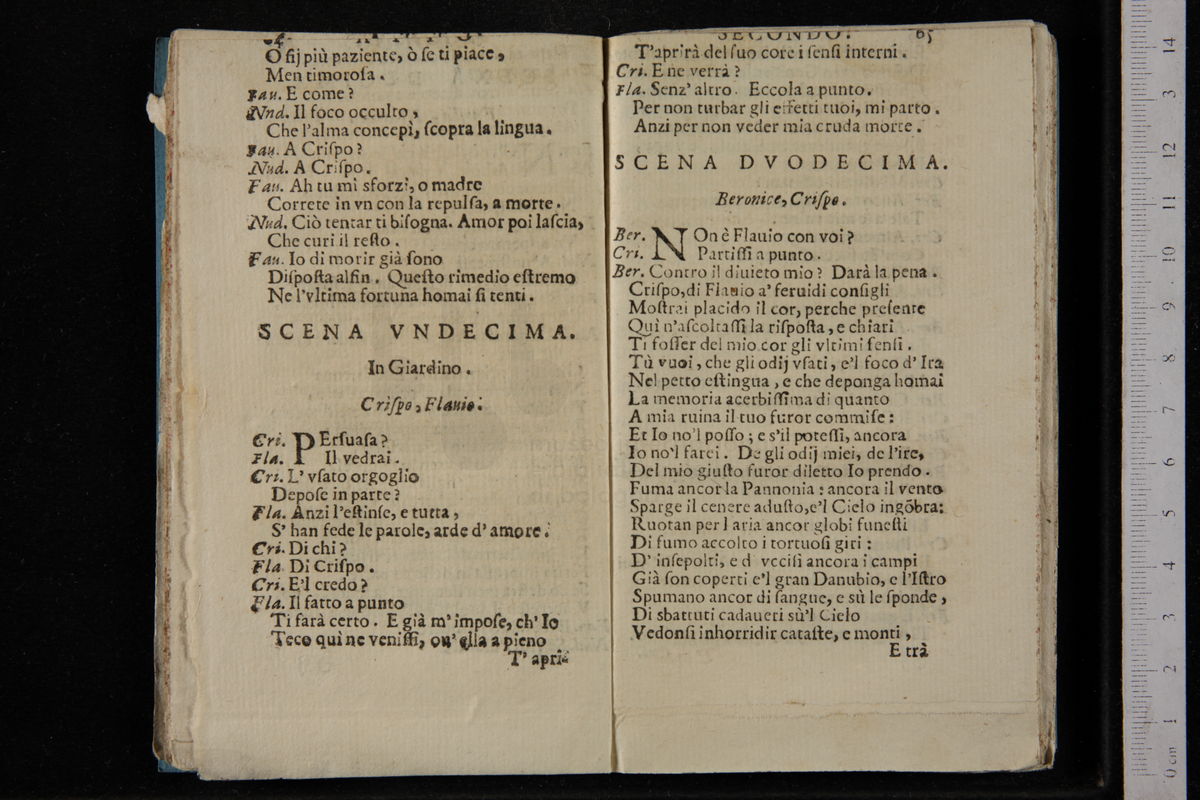 O ſij più paziente, ò ſe ti piace,
Men timoroſa.
Fau. E come?
Nud. Il foco occulto,
Che l'alma concepì, ſcopra la lingua.
Fau. A Criſpo?
Nud. A Criſpo.
Fau. Ah tu mi sforzi, o madre
Correte in vn con la repulſa, a morte.
Nud. Ciò tentar ti biſogna. Amor poi laſcia,
Che curi il reſto.
Fau. Io di morir già ſono
Diſpoſta alfin. Queſto rimedio eſtremo
Ne l'vltima fortuna homai ſi tenti.
SCENA VNDECIMA.
In Giardino.
Criſpo, Flauio.
Cri. PErſuaſa?
Fla. Il vedrai.
Cri. L' vſato orgoglio
Depoſe in parte?
Fla. Anzi l'eſtinſe, e tutta,
S' han fede le parole, arde d' amore.
Cri. Di chi?
Fla. Di Criſpo.
Cri. E'l credo?
Fla. Il fatto a punto
Ti farà certo. E già m' impoſe, ch' Io
Teco quì ne veniſſi, ou' ella a pieno
T' apri-
SECONDO. 65
T'aprirà del ſuo core i ſenſi interni.
Cri. E ne verrà?
Fla. Senz' altro. Eccola a punto.
Per non turbar gli effetti tuoi, mi parto.
Anzi per non veder mia cruda morte.
SCENA DVODECIMA.
Beronice, Criſpo.
Ber. NOn è Flauio con voi?
Cri. Partiſſi a punto.
Ber. Contro il diuieto mio? Darà la pena.
Criſpo, di Flauio a' feruidi conſigli
Moſtrai placido il cor, perche preſente
Quì n'aſcoltaſſi la riſpoſta, e chiari
Ti foſſer del mio cor gli vltimi ſenſi.
Tù vuoi, che gli odij vſati, e'l foco d' Ira
Nel petto eſtingua, e che deponga homai
La memoria acerbiſſima di quanto
A mia ruina il tuo furor commiſe:
Et Io no'l poſſo; e s'il poteſſi, ancora
Io no'l farei. De gli odij miei, de l'ire,
Del mio giuſto furor diletto Io prendo.
Fuma ancor la Pannonia: ancora il vento
Sparge il cenere aduſto, e'l Cielo ingõbra:
Ruotan per l aria ancor globi funeſti
Di fumo accolto i tortuoſi giri:
D' inſepolti, e d vcciſi ancora i campi
Già ſon coperti e'l gran Danubio, e l'Iſtro
Spumano ancor di ſangue, e sù le ſponde,
Di sbattuti cadaueri sù'l Cielo
Vedonſi inhorridir cataſte, e monti,
E trà